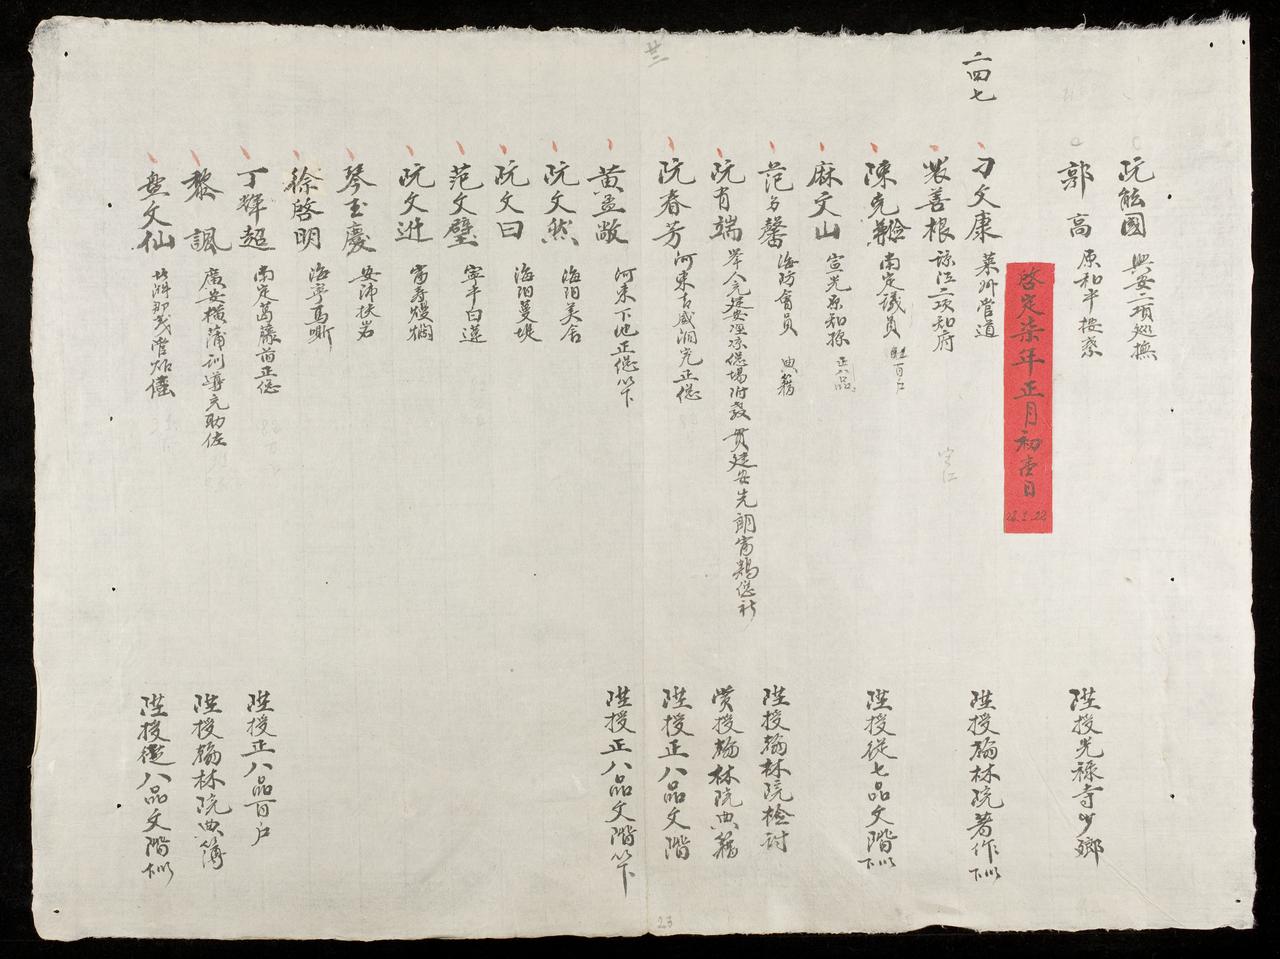 廿三
二四七
阮能國 興安二項巡撫
郭高 原和平按察 陞授光祿寺少卿
啓定柒年正月初壹日
28.1.22
刁文康 萊州管道 陞授翰林院著作
裴善根 諒江二項知府
陳克 南定議員 百戶 陞授從七品文階
麻文山 宣光原知 正八品
范 馨 海防會員 典籍 陞授翰林院檢討
阮有端 舉人 建安 場附教 貫建安先朗 社 賞授翰林院典籍
阮春芳 河東古 正總 陞授正八品文階
黃孟敞 河東下池正總以下 陞授正八品文階以下
阮文然 海陽美舍
阮文曰 海陽蔓堤
范文璧 寧平白蓮
阮文逬 富壽
琴玉慶 安沛扶岩
徐啓明 海寧
丁輝超 南定葛藤 正總 陞授正八品百戶
黎諷 廣安橫蒲訓導充助佐 陞授翰林院典簿
盤文仙 陞授從八品文階
23